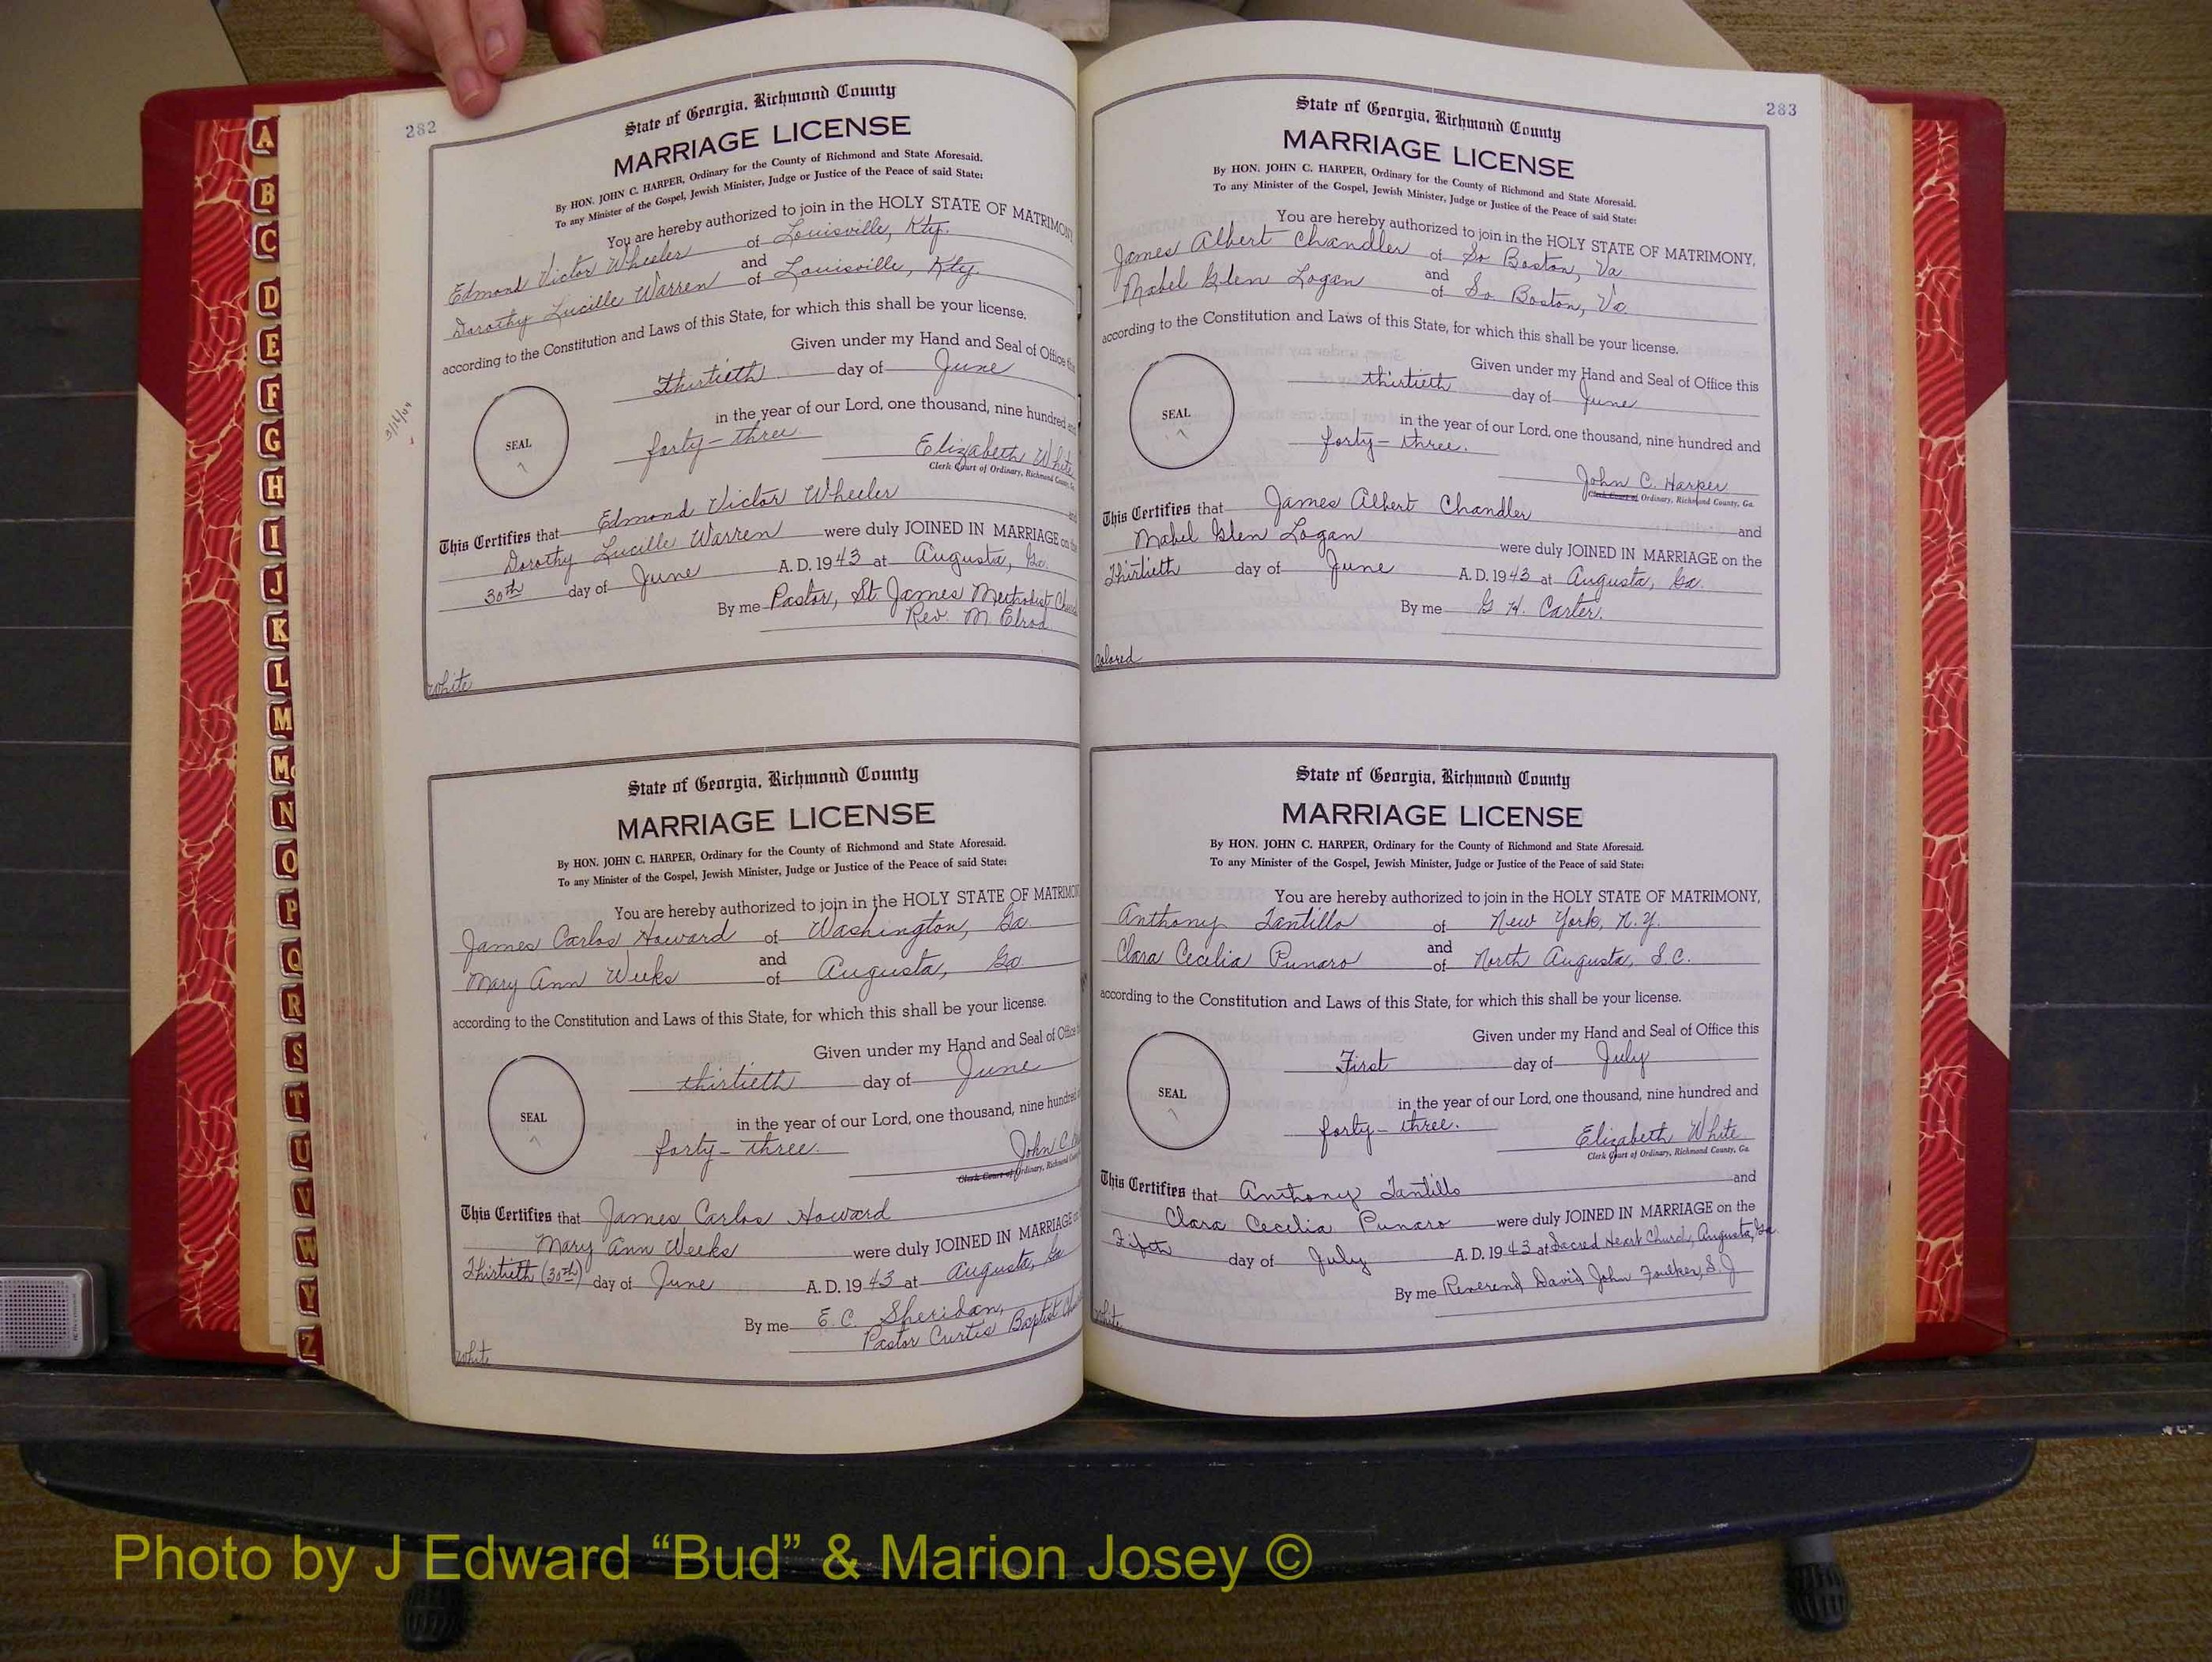 282
State of Georgia, Richmond County
MARRIAGE LICENSE
By HON. JOHN C. HARPER, Ordinary for the County of Richmond and State Aforesaid.
To any Minister of the Gospel, Jewish Minister, Judge or Justice of the Peace of said State:
You are hereby authorized to join in the HOLY STATE OF MATRIMONY
Edmond Victor Wheeler of Louisville, Kty.
and
Dorothy Lucille Warren of Louisville, Kty.
according to the Constitution and Laws of this State, for which this shall be your license.
Given under my Hand and Seal of Office
thirtieth day of June
in the year of our Lord, one thousand, nine hundred
forty-three
SEAL
Elizabeth White
Clerk Court of Ordinary, Richmond County,
This Certifies that Edmond Victor Wheeler
Dorothy Lucille Warren were duly JOINED IN MARRIAGE on
30th day of June A. D. 1943 at Augusta, Ga.
By me Pastor, St James Methodist
Rev. M Elrod
White
State of Georgia, Richmond County
MARRIAGE LICENSE
By HON. JOHN C. HARPER, Ordinary for the County of Richmond and State Aforesaid.
To any Minister of the Gospel, Jewish Minister, Judge or Justice of the Peace of said State:
You are hereby authorized to join in the HOLY STATE OF
James Carlos Howard of Washington, Ga.
and
Mary Ann Weeks of Augusta, Ga
according to the Constitution and Laws of this State, for which this shall be your license.
Given under my Hand and Seal of Office
thirtieth day of June
in the year of our Lord, one thousand, nine hundred
forty-three.
SEAL
John C.
Clerk Court of Ordinary, Richmond
This Certifies that James Carlos Howard
Mary Ann Weeks were duly JOINED IN MARRIAGE
Thirtieth (30th) day of June A. D. 1943 at Augusta, Ga
By me E. C. Sheridan,
Pastor Curtis Baptist
White
283
State of Georgia, Richmond County
MARRIAGE LICENSE
By HON. JOHN C. HARPER, Ordinary for the County of Richmond and State Aforesaid.
To any Minister of the Gospel, Jewish Minister, Judge or Justice of the Peace of said State:
You are hereby authorized to join in the HOLY STATE OF MATRIMONY,
James Albert Chandler of So Boston, Va
and
Mabel Glen Logan of So. Boston, Va.
according to the Constitution and Laws of this State, for which this shall be your license.
Given under my Hand and Seal of Office this
thirtieth day of June
in the year of our Lord, one thousand, nine hundred and
forty-three.
SEAL
John C. Harper
Clerk Court of Ordinary, Richmond County, Ga.
This Certifies that James Albert Chandler and
Mabel Glen Logan were duly JOINED IN MARRIAGE on the
Thirtieth day of June A. D. 1943 at Augusta, Ga.
By me G. H. Carter.
Colored
State of Georgia, Richmond County
MARRIAGE LICENSE
By HON. JOHN C. HARPER, Ordinary for the County of Richmond and State Aforesaid.
To any Minister of the Gospel, Jewish Minister, Judge or Justice of the Peace of said State:
You are hereby authorized to join in the HOLY STATE OF MATRIMONY,
Anthony Tantillo of New York, N.Y.
and
Clara Cecilia Punaro of North Augusta, S.C.
according to the Constitution and Laws of this State, for which this shall be your license.
Given under my Hand and Seal of Office this
First day of July
in the year of our Lord, one thousand, nine hundred and
forty-three.
SEAL
Elizabeth White
Clerk Court of Ordinary, Richmond County, Ga.
This Certifies that Anthony Tantillo and
Clara Cecilia Punaro were duly JOINED IN MARRIAGE on the
Fifth day of July A. D. 1943 at Sacred Heart Church, Augusta, Ga.
By me Reverend David John Foulkes, S.J
White
A
B
C
D
E
F
G
H
I
J
K
L
M
Mc
N
O
P
Q
R
S
T
U
V
W
Y
Z
Photo by J Edward “Bud” & Marion Josey ©